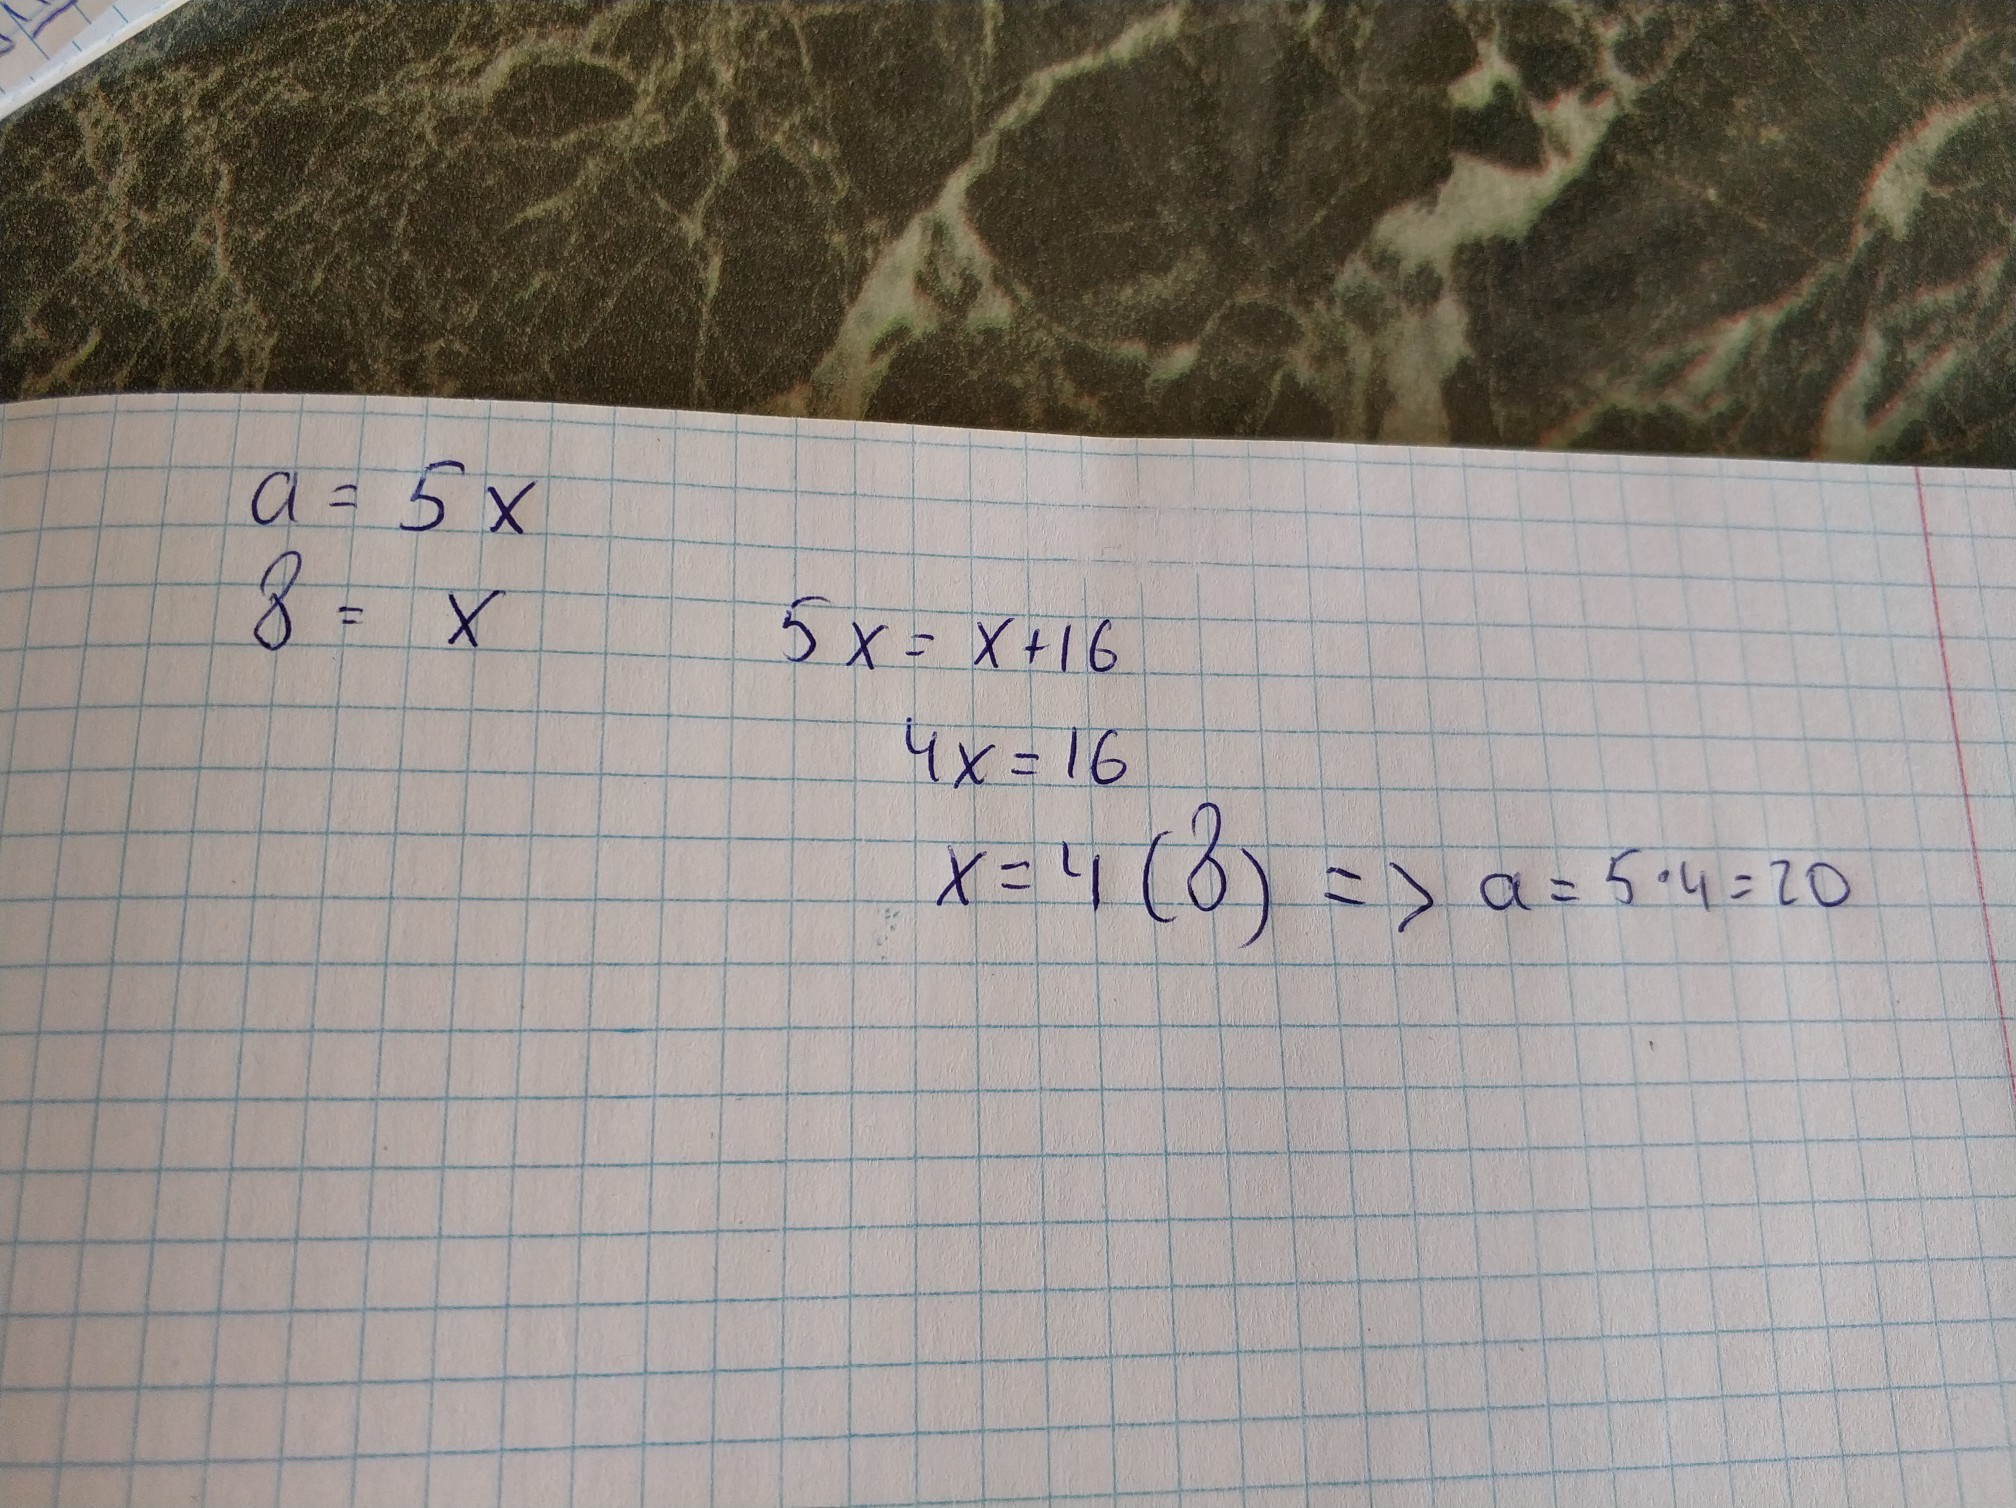 a = 5x
в = x
5x = x+16
4x = 16
x = 4 (в) => a = 5·4 = 20